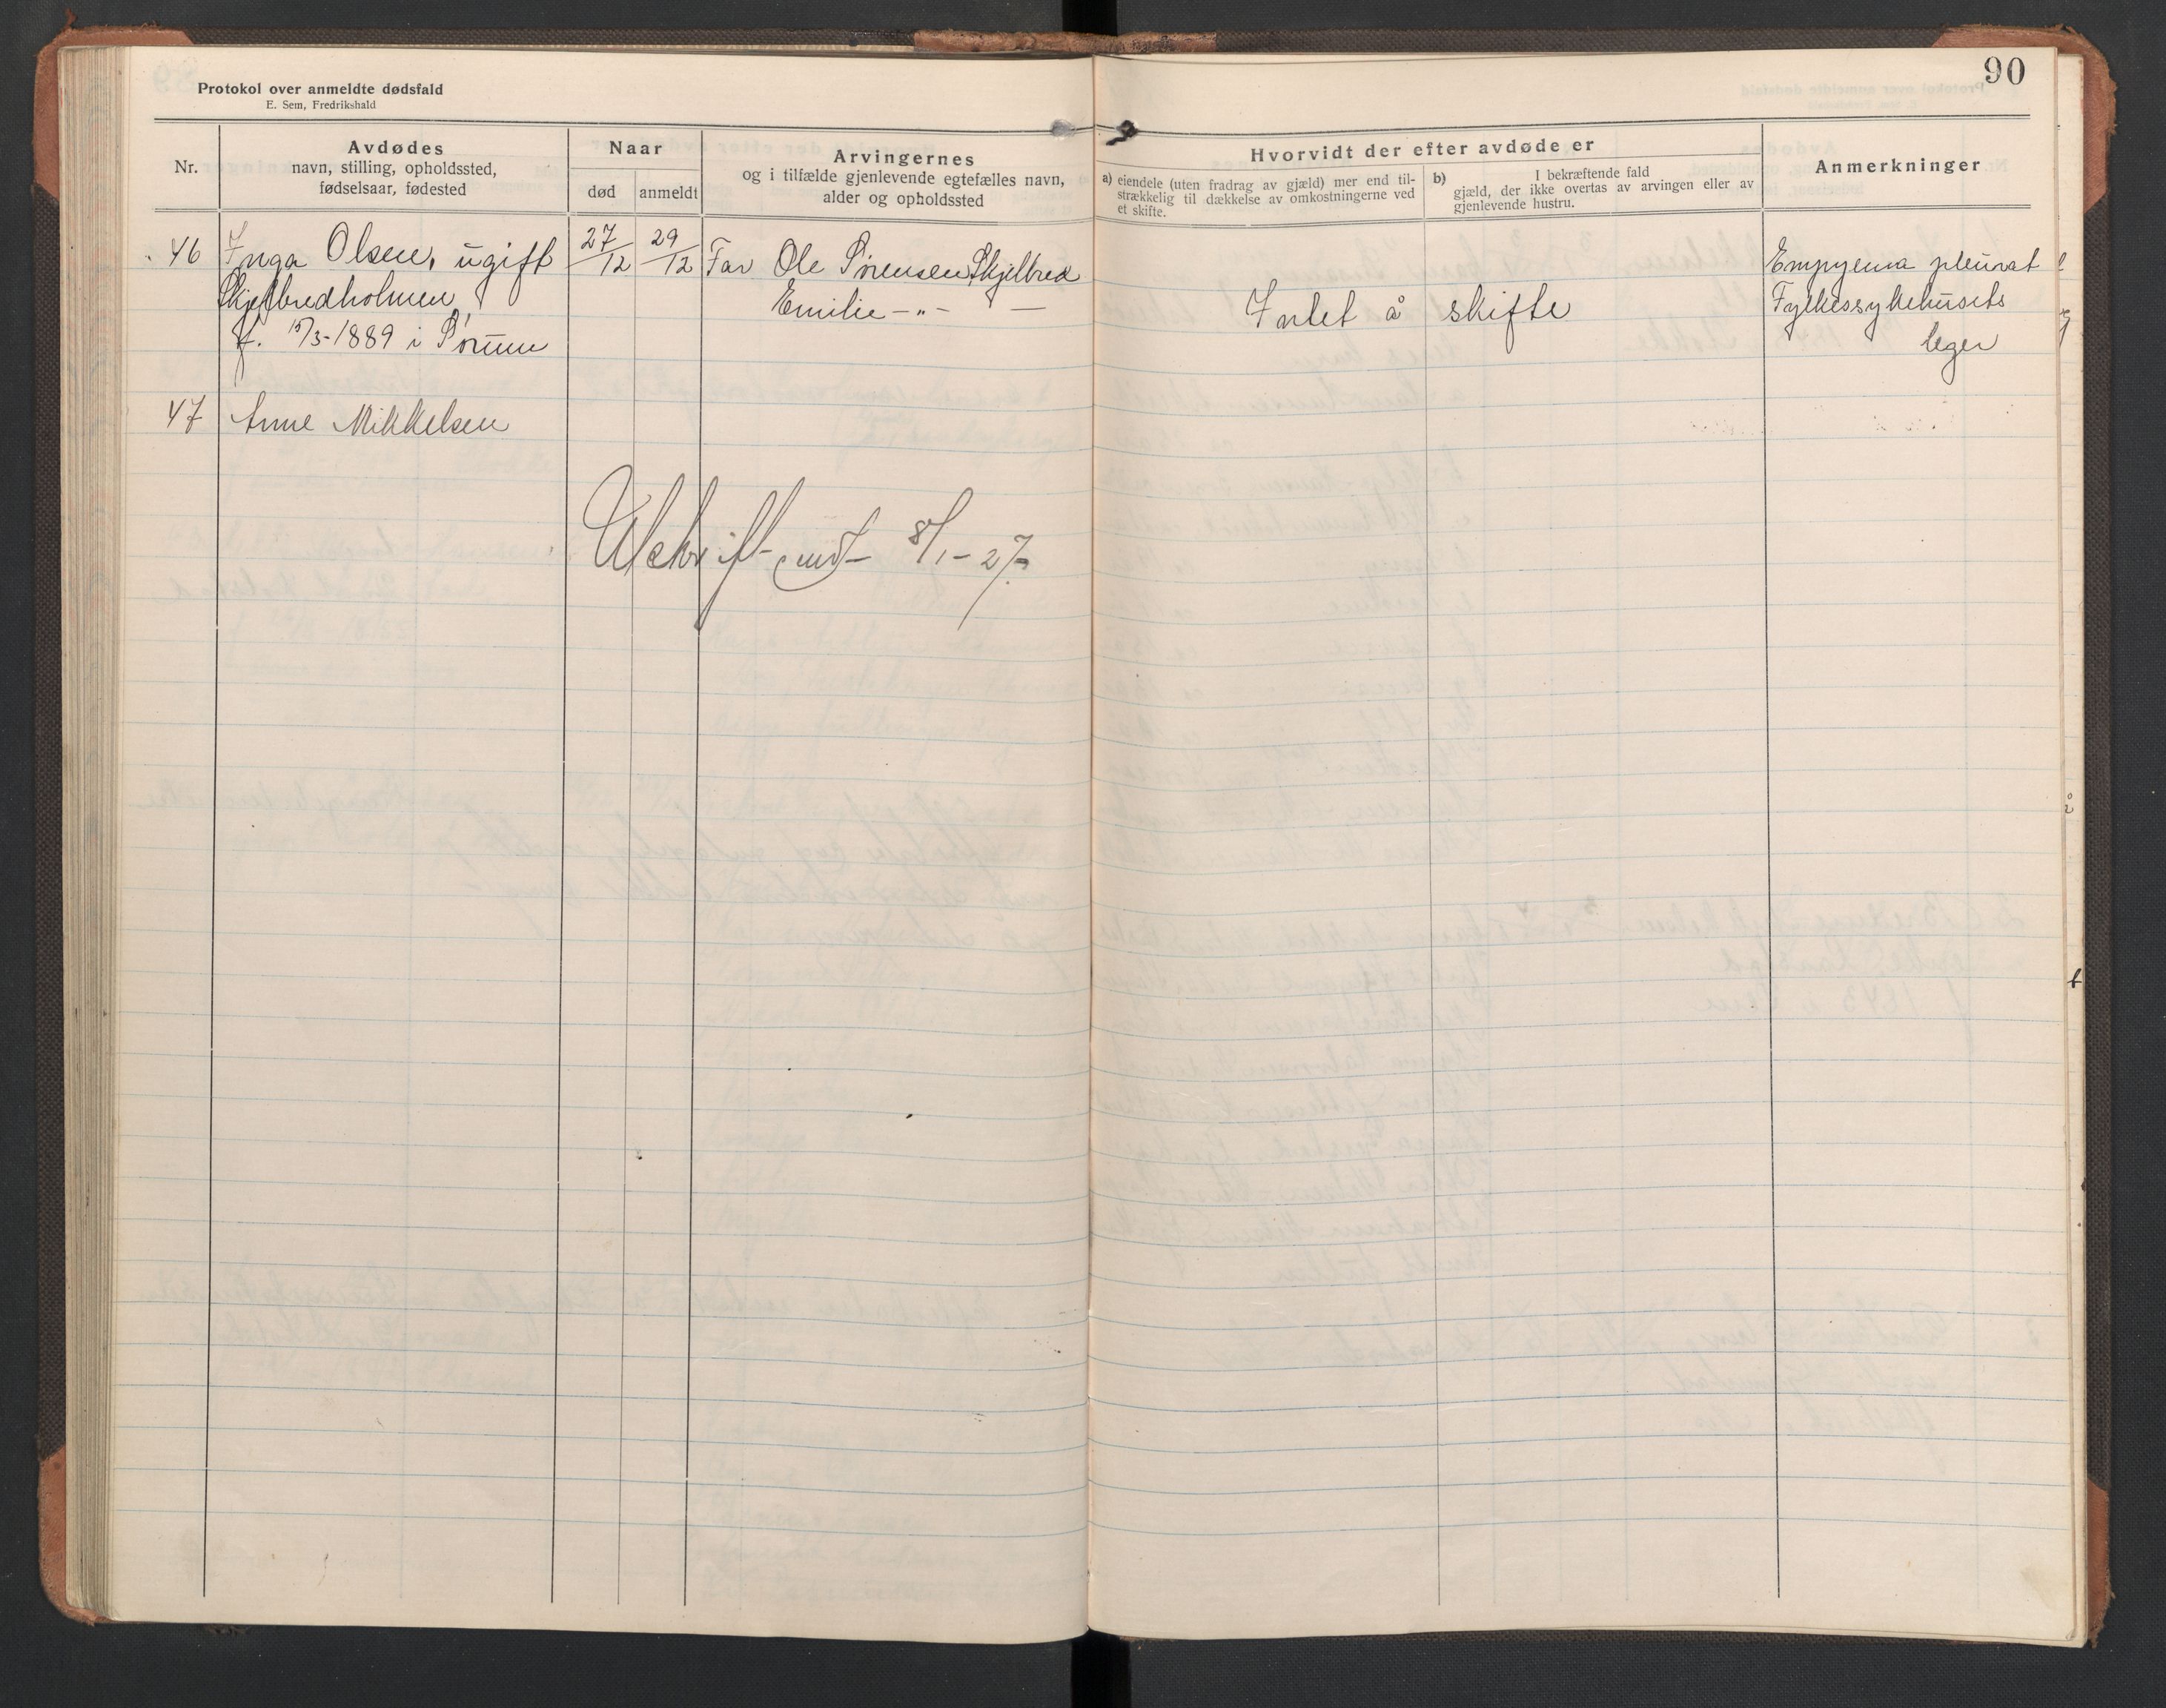 90
Protokol over anmeldte dødsfald
E. Sem, Fredrikshald
Nr.
Avdødes
navn, stilling, opholdssted,
fødselsaar, fødested
Naar
død
anmeldt
Arvingernes
og i tilfælde gjenlevende egtefælles navn,
alder og opholdssted
Hvorvidt der efter avdøde er
a) eiendele (uten fradrag av gjæld) mer end til-
strækkelig til dækkelse av omkostningerne ved
et skifte.
b) I bekræftende fald
gjæld, der ikke overtas av arvingen eller av
gjenlevende hustru.
Anmerkninger
46 Inga Olsen, ugift 27/12 29/12 Far Ole Sørensen Skjelbred
Skjelbredholmen Emilie -"- —
f. 15/3-1889 i Sørum
Intet å skifte
Empyema pleurat
Fylkessykehusets
leger
47 Anne Mikkelsen
Utskrift sendt 8/1-27.